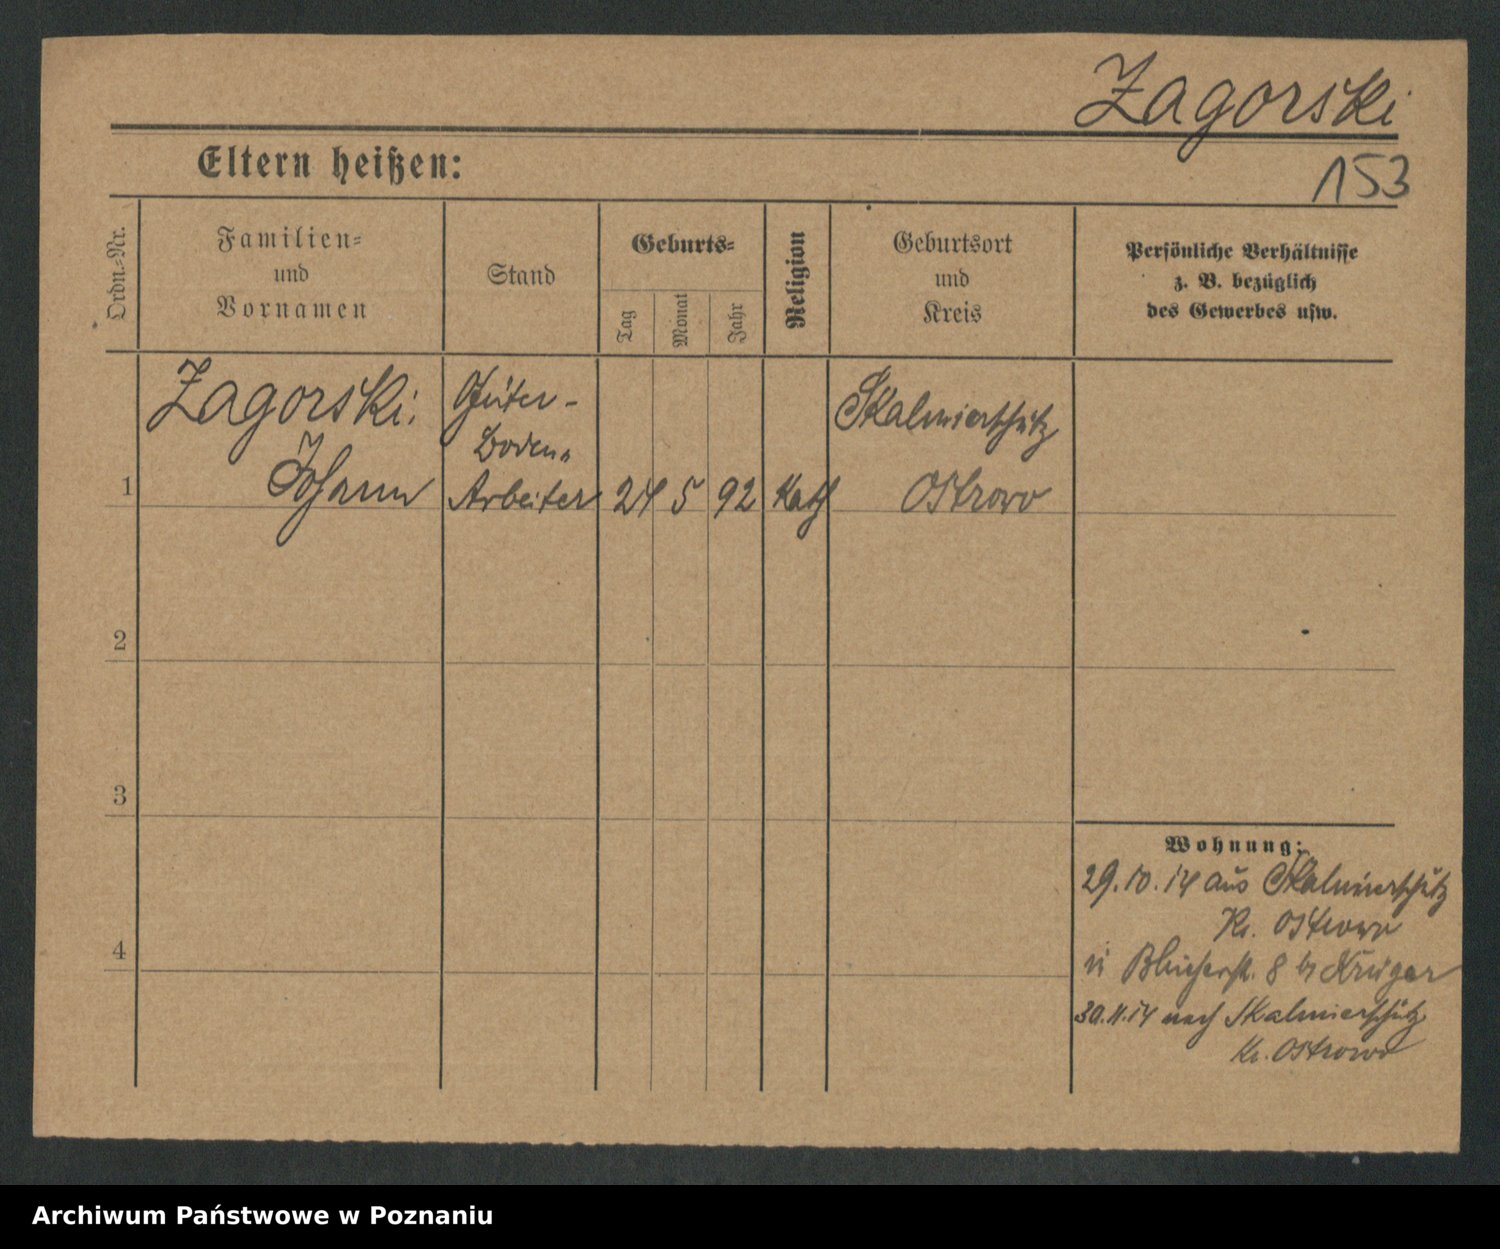 Zagorski
Eltern heißen:
153
Ordn.-Nr.
Familien-
und
Vornamen
Stand
Geburts-
Tag
Monat
Jahr
Religion
Geburtsort
und
Kreis
Persönliche Verhältnisse
z. B. bezüglich
des Gewerbes usw.
Zagorski.
Johann
Güter-
boden-
Arbeiter
1
24
5
92
Kath
Skalmierschütz
Ostrowo
2
3
4
Wohnung:
29.10.14 aus Skalmierschütz
Kr. Ostrowo
n Blücherstr. 8 b/ Krüger
30.11.14 nach Skalmierschütz
Kr. Ostrowo
Archiwum Państwowe w Poznaniu